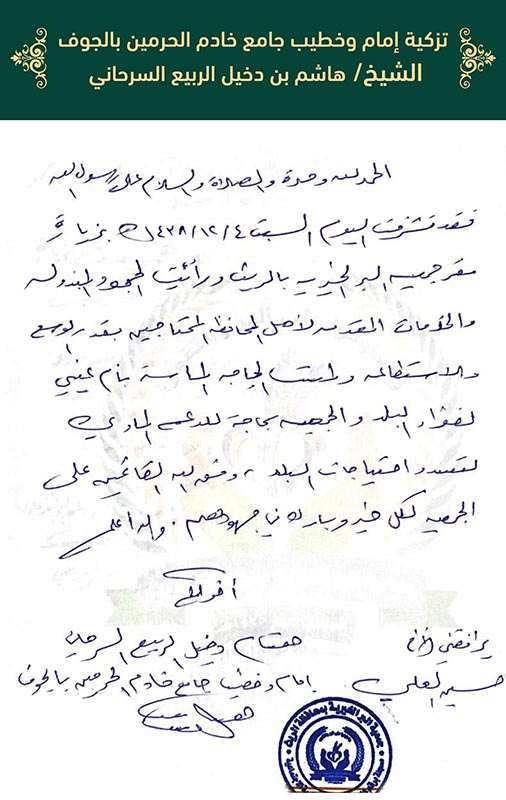 تزكية إمام وخطيب جامع خادم الحرمين بالجوف
الشيخ/ هاشم بن دخيل الربيع السرحاني
الحمد لله وحده والصلاة والسلام على رسول الله
فقد تشرفت اليوم السبت ١٤٣٨/١٢/٤هـ بزيارة
مقر جمعيه البر الخيريه بالريث ورأيت الجهود المبذوله
والخدمات المقدمه لأهل المحافظه المحتاجين بقدر الوسع
والاستطاعه ولمست الحاجه الماسة بأم عيني
لفقراء البلد والجمعيه بحاجة للدعم المادي
لتسدد احتياجات البلد، وفق الله القائمين على
الجمعيه لكل خير وبارك في جهودهم. والله أعلم
أخوكم
يرافقني الأخ
حسين العلي
هشام دخيل الربيع السرحاني
إمام وخطيب جامع خادم الحرمين بالجوف
جمعية البر الخيرية بمحافظة الريث